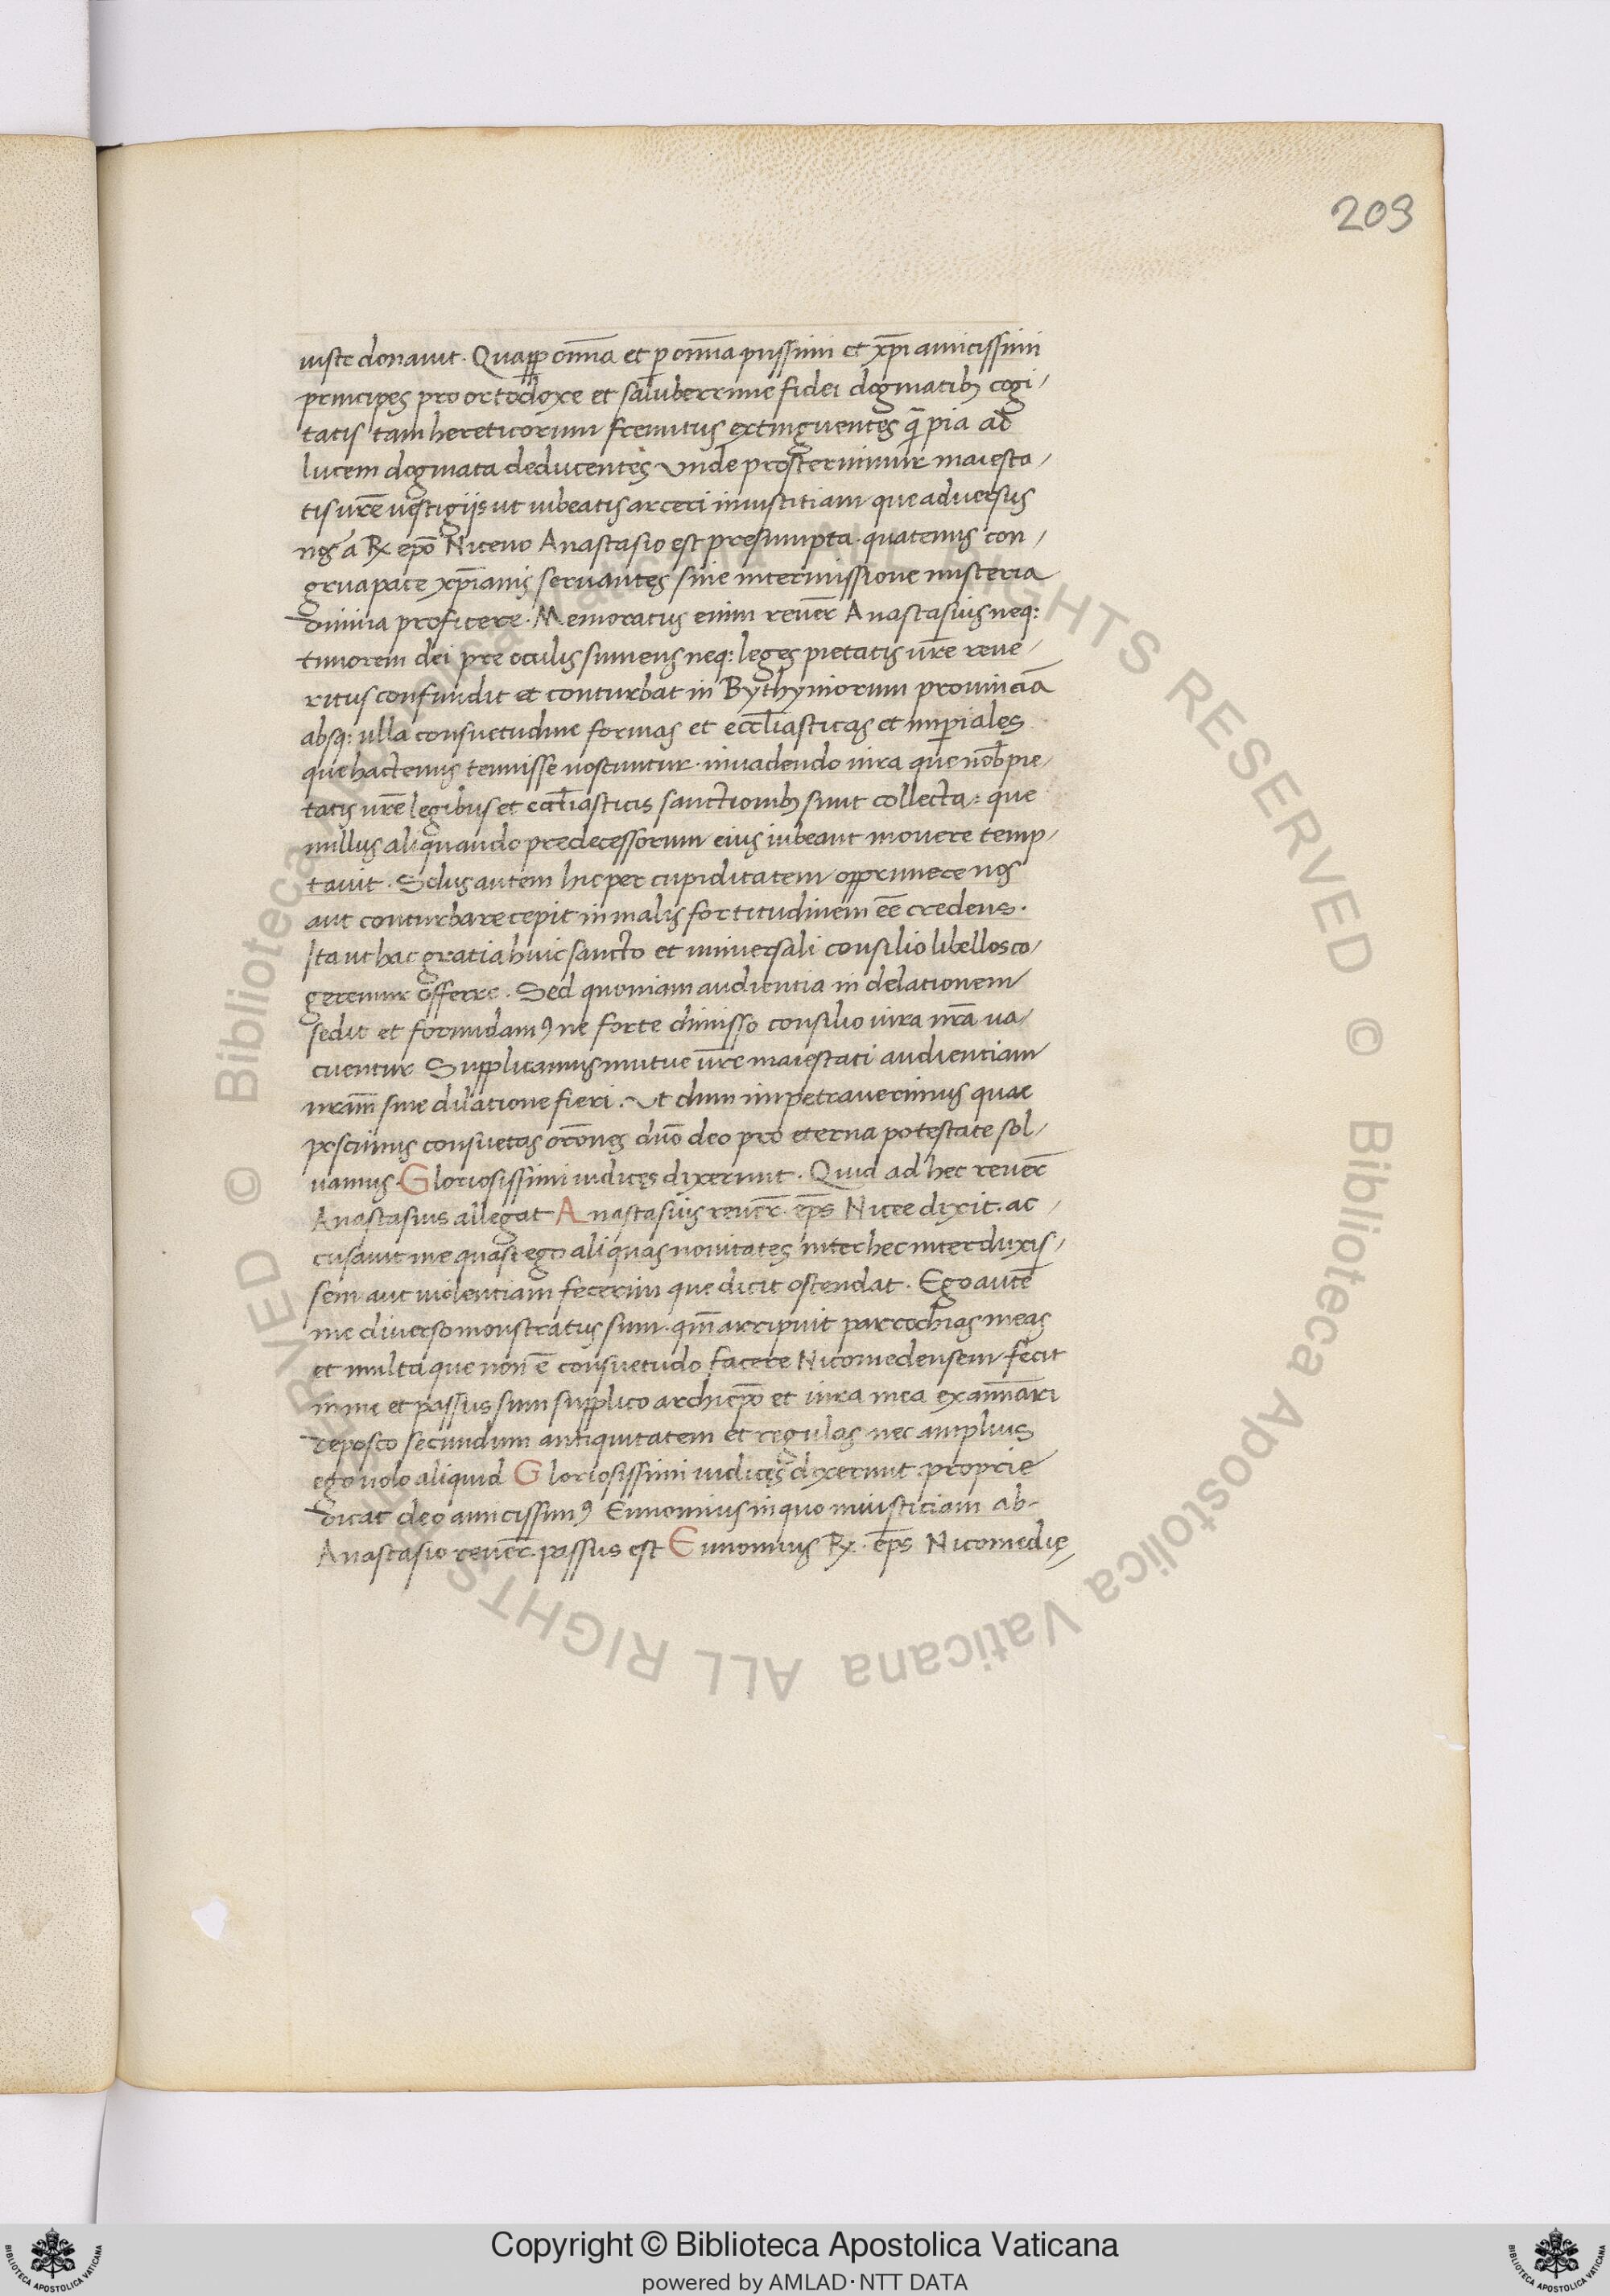 209
iuste donauit. Quapp om̄ia et p om̄ia piissimi et xp̄i amicissimi
principes pro ortodoxe et saluberrime fidei dogmatibȝ cogi/
tatis tam hereticorum fremitus extinguentes q̄ pia ad
lucem dogmata deducentes vnde prosternimur maiesta/
tis vr̄e uestigijs ut iubeatis arceri iniustitiam que aduersus
nos a Rx ep̄o Niceno Anastasio est presumpta. quatenus con/
grua pace xp̄ianis seruantes sine intermissione misteria
diuina proficere. Memoratus enim reuer̄ Anastasius neq:
timorem dei pre oculis sumens neq: leges pietatis vr̄e reue/
ritus confundit et conturbat in Bythyniorum prouinciā
absq: ulla consuetudine formas et eccl̄iasticas et imperiales
que hactenus tenuisse noscuntur. inuadendo iura que nob̄ pie/
tatis vr̄e legibus et eccl̄iasticis sanctionibȝ sunt collecta: que
nullus aliquando predecessorum eius iubeant mouere temp/
tauit. Solus autem hic per cupiditatem opprimere nos
aut conturbare cepit in malis fortitudinem eē credens.
Ita ut hac gratia huic sancto et uniuersali consilio libellos co/
geremur offerre. Sed quoniam audientia in delationem
sedit et formidamꝰ ne forte dimisso consilio iura nr̄a ua/
cuentur Supplicamus mutue vr̄e maiestati audientiam
nr̄am sine dilatione fieri. Ut dum impetrauerimus quae
poscimus consuetas or̄ones dn̄o deo pro eterna potestate sol/
uamus. Gloriosissimi iudices dixerunt. Quid ad hec reuer̄
Anastasius allegat Anastasius reuer̄. ep̄s Nicee dixit. ac/
cusauit me quasi ego aliquas nouitates inter hec interduxis/
sem aut uiolentiam fecerim que dicit ostendat. Ego autē
me diuerso monstratus sum. qm̄ arripuit parrochias meas
et multa que non ē consuetudo facere Nicomedensem fecit
in me et passus sum supplico archiep̄o et iura mea examinari
deposco secundum antiquitatem et regulas nec amplius
ego uolo aliquid Gloriosissimi iudices dixerunt. proprie
dicat deo amicissimꝰ Eunomius in quo iniusticiam ab-
Anastasio reuer̄. passus est Eunomius Rx. ep̄s Nicomedię
Copyright © Biblioteca Apostolica Vaticana
powered by AMLAD·NTT DATA